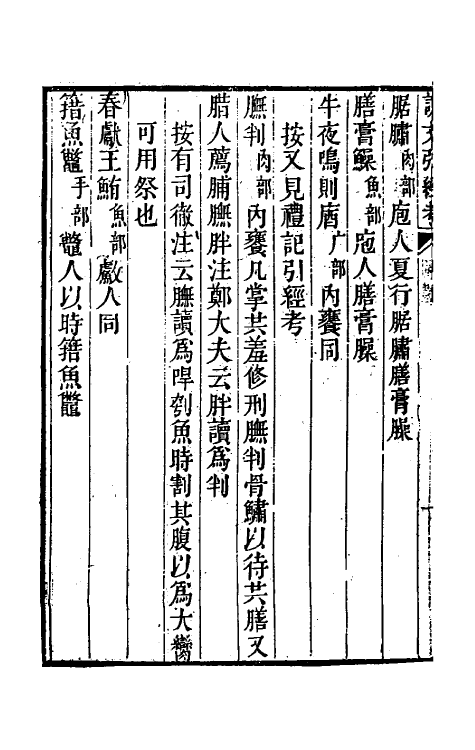 說文引經考
腒鱐肉部庖人夏行腒鱐膳膏臊
膳膏鱢魚部庖人膳膏臊
牛夜鳴則庮广部內饔同
按又見禮記引經考
膴判肉部內饔凡掌共羞修刑膴判骨鱐以待共膳又
腊人薦脯膴胖注鄭大夫云胖讀爲判
按有司徹注云膴讀爲哻刳魚時割其腹以爲大臠
可用祭也
春獻王鮪魚部䱷人同
籍魚鼈手部鼈人以時籍魚鼈